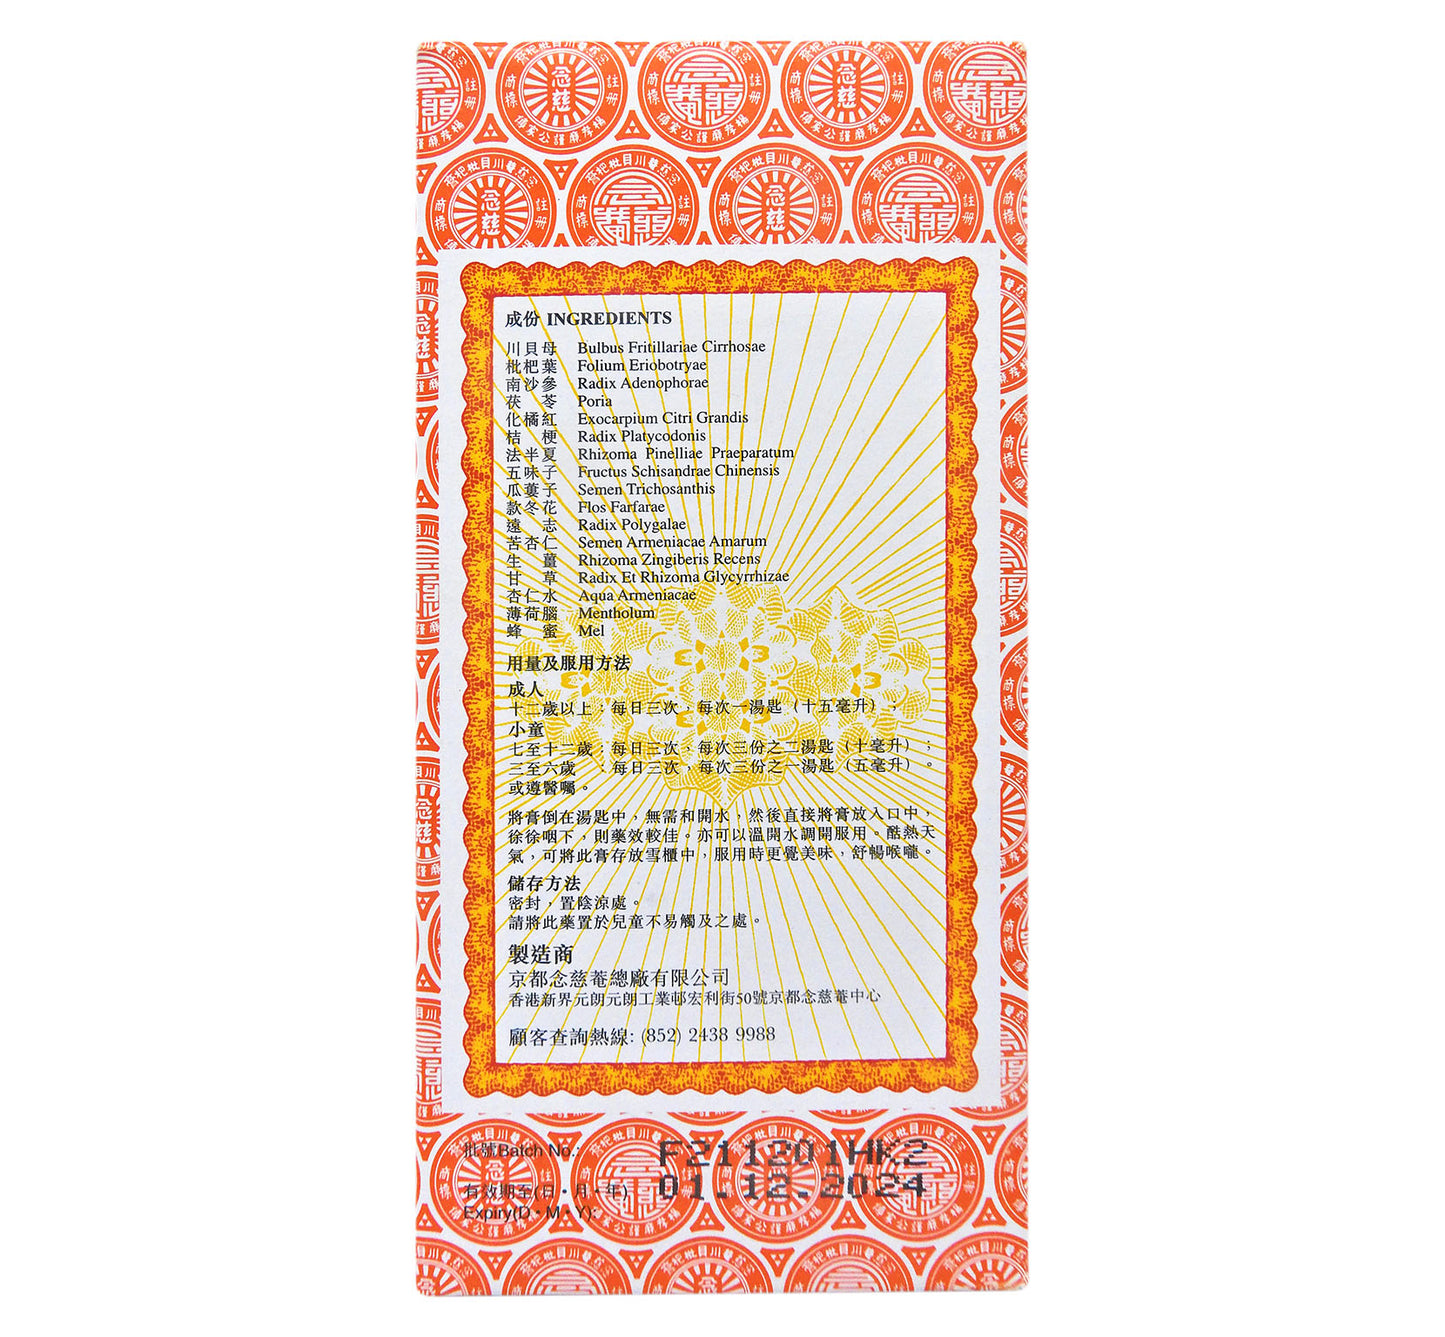 成份 INGREDIENTS
川貝母 Bulbus Fritillariae Cirrhosae
枇杷葉 Folium Eriobotryae
南沙參 Radix Adenophorae
茯苓 Poria
化橘紅 Exocarpium Citri Grandis
桔梗 Radix Platycodonis
法半夏 Rhizoma Pinelliae Praeparatum
五味子 Fructus Schisandrae Chinensis
瓜蔞子 Semen Trichosanthis
款冬花 Flos Farfarae
遠志 Radix Polygalae
苦杏仁 Semen Armeniacae Amarum
生薑 Rhizoma Zingiberis Recens
甘草 Radix Et Rhizoma Glycyrrhizae
杏仁水 Aqua Armeniacae
薄荷腦 Mentholum
蜂蜜 Mel
用量及服用方法
成人
十二歲以上：每日三次，每次一湯匙（十五毫升）；
小童
七至十二歲：每日三次，每次三份之二湯匙（十毫升）；
三至六歲 ：每日三次，每次三份之一湯匙（五毫升）。
或遵醫囑。
將膏倒在湯匙中，無需和開水，然後直接將膏放入口中，
徐徐咽下，則藥效較佳。亦可以溫開水調開服用。酷熱天
氣，可將此膏存放雪櫃中，服用時更覺美味，舒暢喉嚨。
儲存方法
密封，置陰涼處。
請將此藥置於兒童不易觸及之處。
製造商
京都念慈菴總廠有限公司
香港新界元朗元朗工業邨宏利街50號京都念慈菴中心
顧客查詢熱線: (852) 2438 9988
批號Batch No.: F211201HK2
有效期至(日・月・年) 01.12.2024
Expiry(D・M・Y):